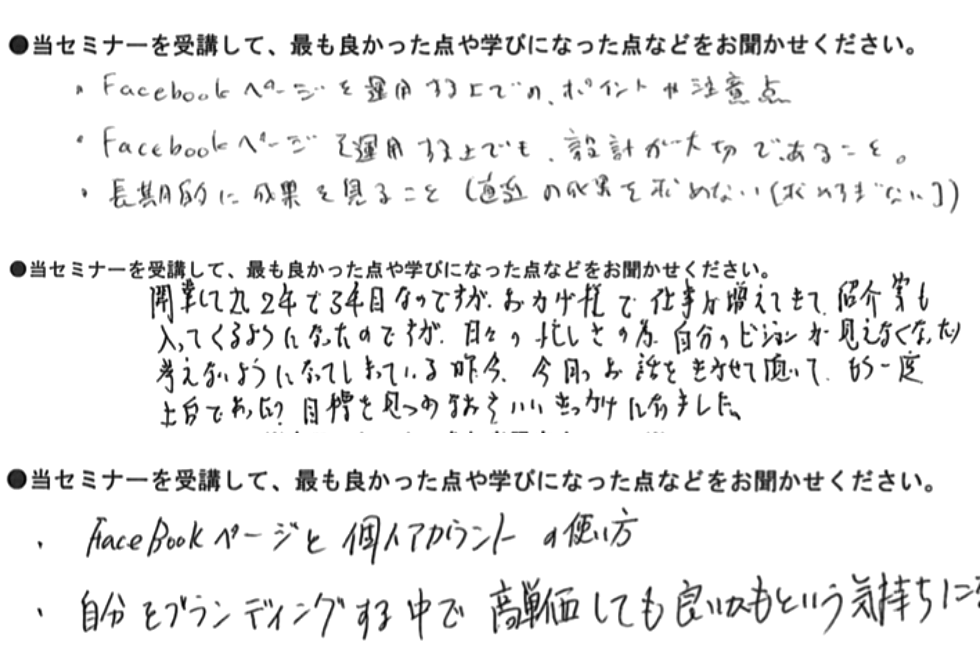 ●当セミナーを受講して、最も良かった点や学びになった点などをお聞かせください。
・Facebookページを運用する上での、ポイントや注意点
・Facebookページを運用する上でも、設計が大切であること。
・長期的に成果を見ること(直近の成果を求めない(求めすぎない))
●当セミナーを受講して、最も良かった点や学びになった点などをお聞かせください。
開業して丸2年で3年目なのですが、おかげ様で仕事が増えてきて、紹介等も
入ってくるようになったのですが、日々の忙しさの為、自分のビジョンが見えなくなったり
考えないようになってしまっている昨今、今回のお話をきかせて頂いて、もう一度
目標を見つめなおすいいきっかけになりました。
●当セミナーを受講して、最も良かった点や学びになった点などをお聞かせください。
・FaceBookページと個人アカウントの使い方
・自分をブランディングする中で高単価しても良いかもという気持ちに